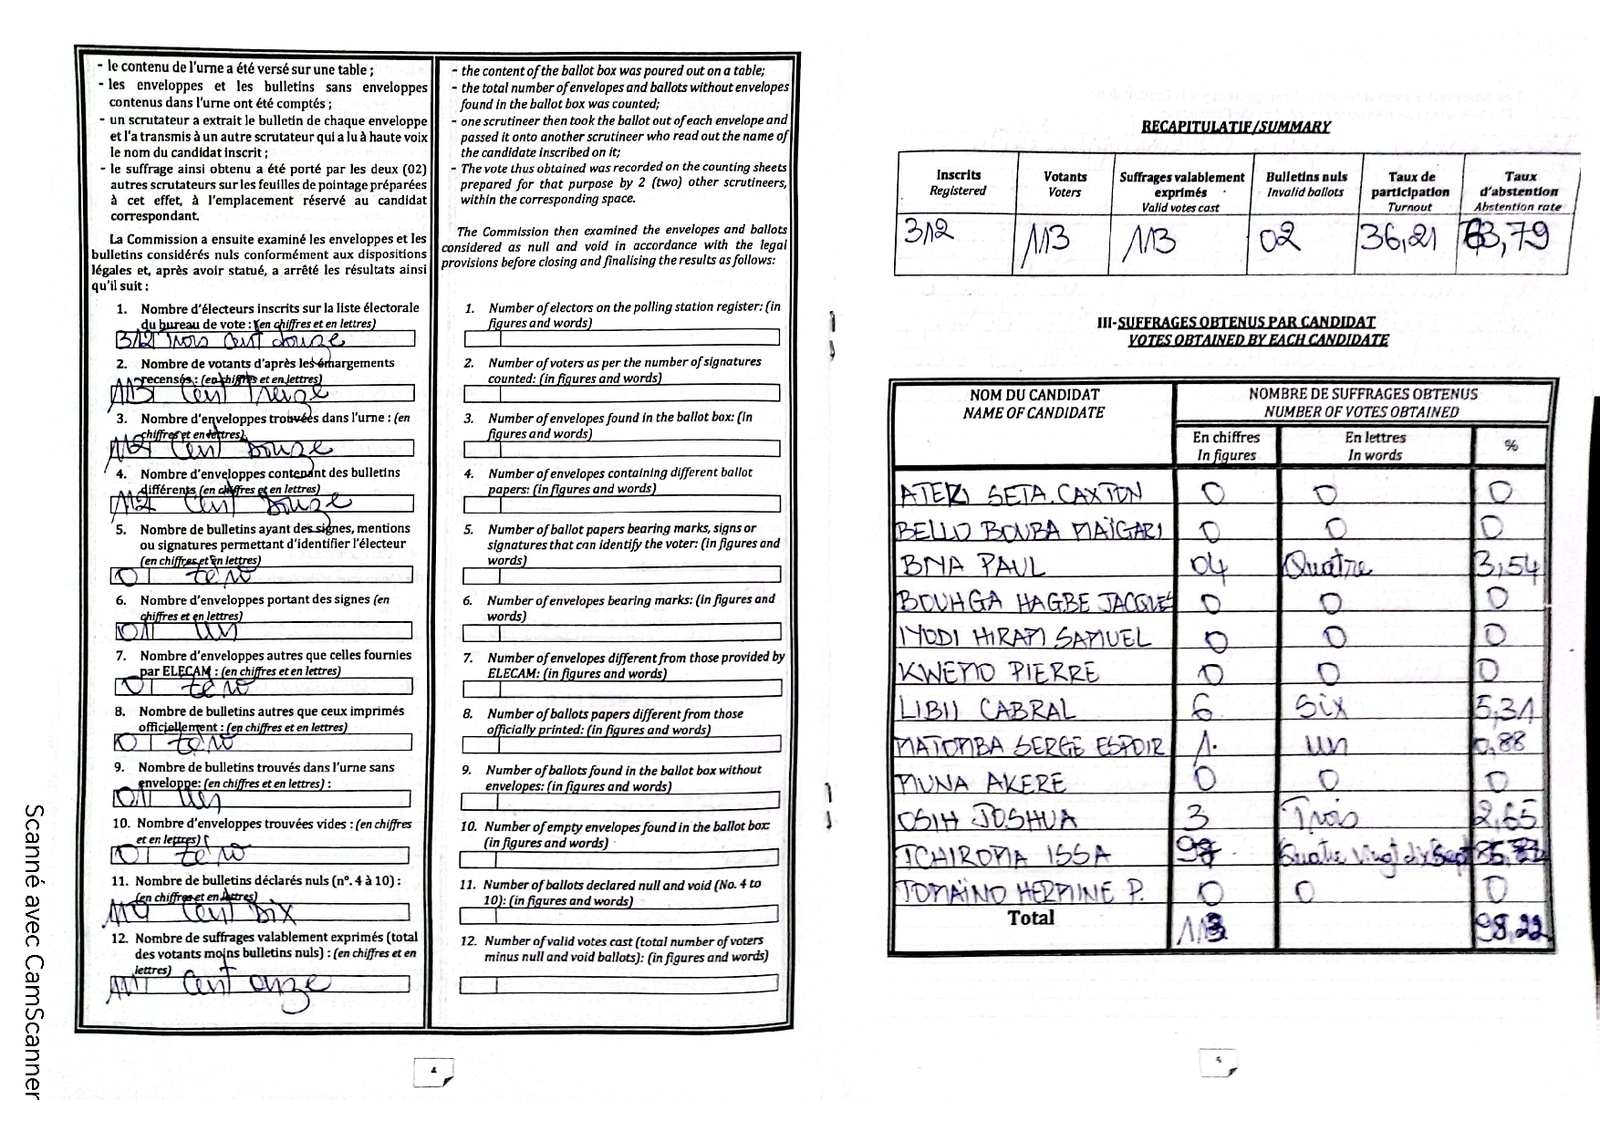 - le contenu de l'urne a été versé sur une table ;
- les enveloppes et les bulletins sans enveloppes
contenus dans l'urne ont été comptés ;
- un scrutateur a extrait le bulletin de chaque enveloppe
et l'a transmis à un autre scrutateur qui a lu à haute voix
le nom du candidat inscrit ;
- le suffrage ainsi obtenu a été porté par les deux (02)
autres scrutateurs sur les feuilles de pointage préparées
à cet effet, à l'emplacement réservé au candidat
correspondant.
La Commission a ensuite examiné les enveloppes et les
bulletins considérés nuls conformément aux dispositions
légales et, après avoir statué, a arrêté les résultats ainsi
qu'il suit :
1. Nombre d'électeurs inscrits sur la liste électorale
du bureau de vote : (en chiffres et en lettres)
312 Trois cent douze
2. Nombre de votants d'après les émargements
recensés : (en chiffres et en lettres)
113 Cent Treize
3. Nombre d'enveloppes trouvées dans l'urne : (en
chiffres et en lettres)
112 Cent Douze
4. Nombre d'enveloppes contenant des bulletins
différents (en chiffres et en lettres)
112 Cent Douze
5. Nombre de bulletins ayant des signes, mentions
ou signatures permettant d'identifier l'électeur
(en chiffres et en lettres)
0 zéro
6. Nombre d'enveloppes portant des signes (en
chiffres et en lettres)
01 un
7. Nombre d'enveloppes autres que celles fournies
par ELECAM : (en chiffres et en lettres)
0 zéro
8. Nombre de bulletins autres que ceux imprimés
officiellement : (en chiffres et en lettres)
0 zéro
9. Nombre de bulletins trouvés dans l'urne sans
enveloppe: (en chiffres et en lettres) :
01 un
10. Nombre d'enveloppes trouvées vides : (en chiffres
et en lettres)
0 zéro
11. Nombre de bulletins déclarés nuls (n°. 4 à 10) :
(en chiffres et en lettres)
Cent
12. Nombre de suffrages valablement exprimés (total
des votants moins bulletins nuls) : (en chiffres et en
lettres)
111 Cent onze
- the content of the ballot box was poured out on a table;
- the total number of envelopes and ballots without envelopes
found in the ballot box was counted;
- one scrutineer then took the ballot out of each envelope and
passed it onto another scrutineer who read out the name of
the candidate inscribed on it;
- The vote thus obtained was recorded on the counting sheets
prepared for that purpose by 2 (two) other scrutineers,
within the corresponding space.
The Commission then examined the envelopes and ballots
considered as null and void in accordance with the legal
provisions before closing and finalising the results as follows:
1. Number of electors on the polling station register: (in
figures and words)
2. Number of voters as per the number of signatures
counted: (in figures and words)
3. Number of envelopes found in the ballot box: (in
figures and words)
4. Number of envelopes containing different ballot
papers: (in figures and words)
5. Number of ballot papers bearing marks, signs or
signatures that can identify the voter: (in figures and
words)
6. Number of envelopes bearing marks: (in figures and
words)
7. Number of envelopes different from those provided by
ELECAM: (in figures and words)
8. Number of ballots papers different from those
officially printed: (in figures and words)
9. Number of ballots found in the ballot box without
envelopes: (in figures and words)
10. Number of empty envelopes found in the ballot box:
(in figures and words)
11. Number of ballots declared null and void (No. 4 to
10): (in figures and words)
12. Number of valid votes cast (total number of voters
minus null and void ballots): (in figures and words)
4
RECAPITULATIF/SUMMARY
Inscrits Registered Votants Voters Suffrages valablement exprimés Valid votes cast Bulletins nuls Invalid ballots Taux de participation Turnout Taux d'abstention Abstention rate
312 113 113 02 36,21 63,79
III-SUFFRAGES OBTENUS PAR CANDIDAT
VOTES OBTAINED BY EACH CANDIDATE
NOM DU CANDIDAT NOMBRE DE SUFFRAGES OBTENUS
NAME OF CANDIDATE NUMBER OF VOTES OBTAINED
En chiffres En lettres %
In figures In words
ATEKI SETA CAXTON 0 0 0
BELLO BOUBA MAÏGARI 0 0 0
BIYA PAUL 04 Quatre 3,54
BOUHGA HAGBE JACQUES 0 0 0
IYODI HIRAM SAMUEL 0 0 0
KWEMO PIERRE 0 0 0
LIBII CABRAL 6 Six 5,31
MATOMBA SERGE ESPOIR 1. un 0,88
MUNA AKERE 0 0 0
OSIH JOSHUA 3 Trois 2,65
TCHIROMA ISSA 97 Quatre vingt dix sept
TOMAÏNO HERMINE P. 0 0 0
Total 113 98,22
5
Scanné avec CamScanner